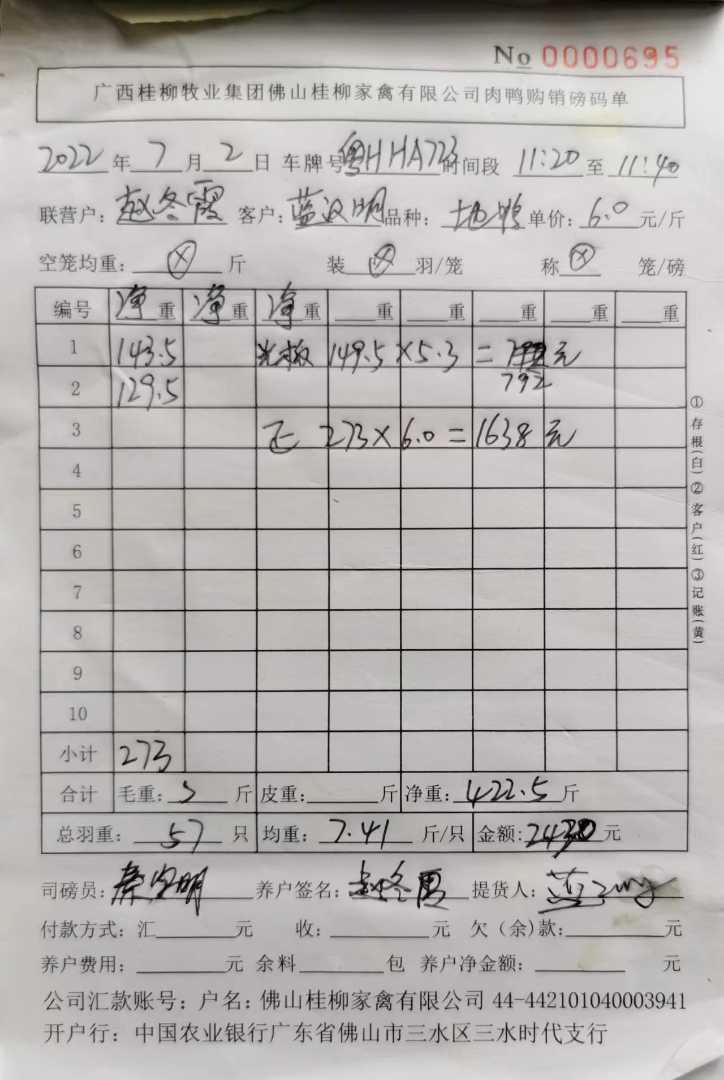 No 0000695
广西桂柳牧业集团佛山桂柳家禽有限公司肉鸭购销磅码单
2022年7月2日 车牌号粤HHA723时间段 11:20至11:40
联营户：赵冬霞 客户：蓝汉明品种：地鸭单价：6.0元/斤
空笼均重：斤 装羽/笼 称笼/磅
编号 净重 净重 净重 重 重 重 重 重
1 143.5 光板 149.5×5.3=元
2 129.5 792
3 正 273×6.0=1638元
4
5
6
7
8
9
10
小计 273
合计 毛重：斤 皮重：斤 净重：422.5斤
总羽重：57只 均重：7.41斤/只 金额：2430元
司磅员：明 养户签名：赵冬霞 提货人：蓝
付款方式：汇元 收：元 欠（余）款：元
养户费用：元 余料包 养户净金额：元
公司汇款账号：户名：佛山桂柳家禽有限公司 44-442101040003941
开户行：中国农业银行广东省佛山市三水区三水时代支行
①存根(白)②客户(红)③记账(黄)